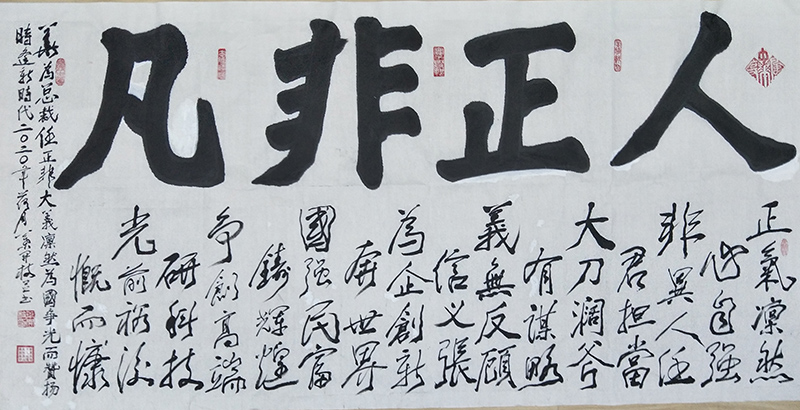 人正非凡
正氣凛然
自强
非異人任
君担當
大刀濶斧
有謀略
義無反顧
信义張
為企創新
奔世界
國强民富
鑄輝煌
争創高端
研科技
光前裕後
慨而慷
華為总裁任正非大義凛然為國争光而贊揚
時逢新時代二〇二〇年